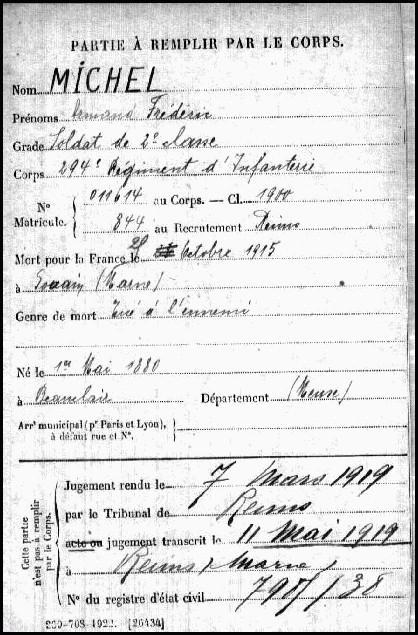 PARTIE À REMPLIR PAR LE CORPS.
Nom MICHEL
Prénoms Armand Frédéric
Grade Soldat de 2e classe
Corps 294e Régiment d'Infanterie
N° Matricule. 011614 au Corps. — Cl. 1900
844 au Recrutement Reims
Mort pour la France le Octobre 1915
à (Marne)
Genre de mort Tué à l'ennemi
Né le 1er Mai 1880
à Département (Meuse)
Arrt municipal (pr Paris et Lyon), à défaut rue et N°.
Cette partie n'est pas à remplir par le Corps.
Jugement rendu le 7 Mars 1919
par le Tribunal de Reims
acte ou jugement transcrit le 11 Mai 1919
à Reims Marne
N° du registre d'état civil
[26434]